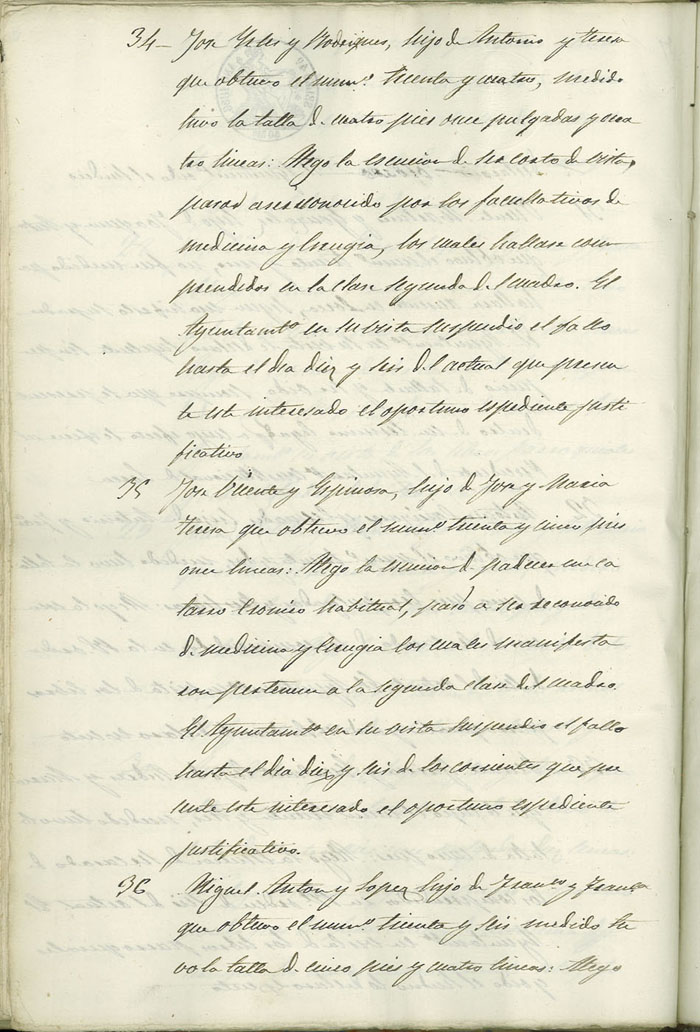 34- Jose Yrles y Rodrigues, hijo de Antonio y teresa
que obtuvo el num.º treinta y cuatro, medido
tuvo la talla d. cuatro pies once pulgadas y cua
tro lineas: Alego la escucion d. ser corto de vista,
paso á ser reconocido por los facultativos de
medicina y Cirugia, los cuales hallase com
prendidos en la clase segunda del cuadro. El
Ayuntamtº en su vista suspendio el fallo
hasta el dia diez y seis del actual que presen
te este interesado el oportuno espediente justi
ficativo
35 Jose Vicente y Espinosa, hijo de Jose y Maria
teresa que obtuvo el num.º treinta y cinco pies
once lineas: Alego la escucion d. padecer un ca
tarro Cronico habitual, pasó a ser reconocido
d. medicina y Cirugia los cuales manifesta
ron pertenecer a la segunda clase del cuadro.
El Ayuntamtº en su vista suspendio el fallo
hasta el dia diez y seis de los corrientes que pre
sente este interesado el oportuno espediente
justificativo.
36 Miguel Anton y Lopez hijo de Franco y Franca
que obtuvo el num.º treinta y seis medido tu
vo la talla d. cinco pies y cuatro lineas: Alego